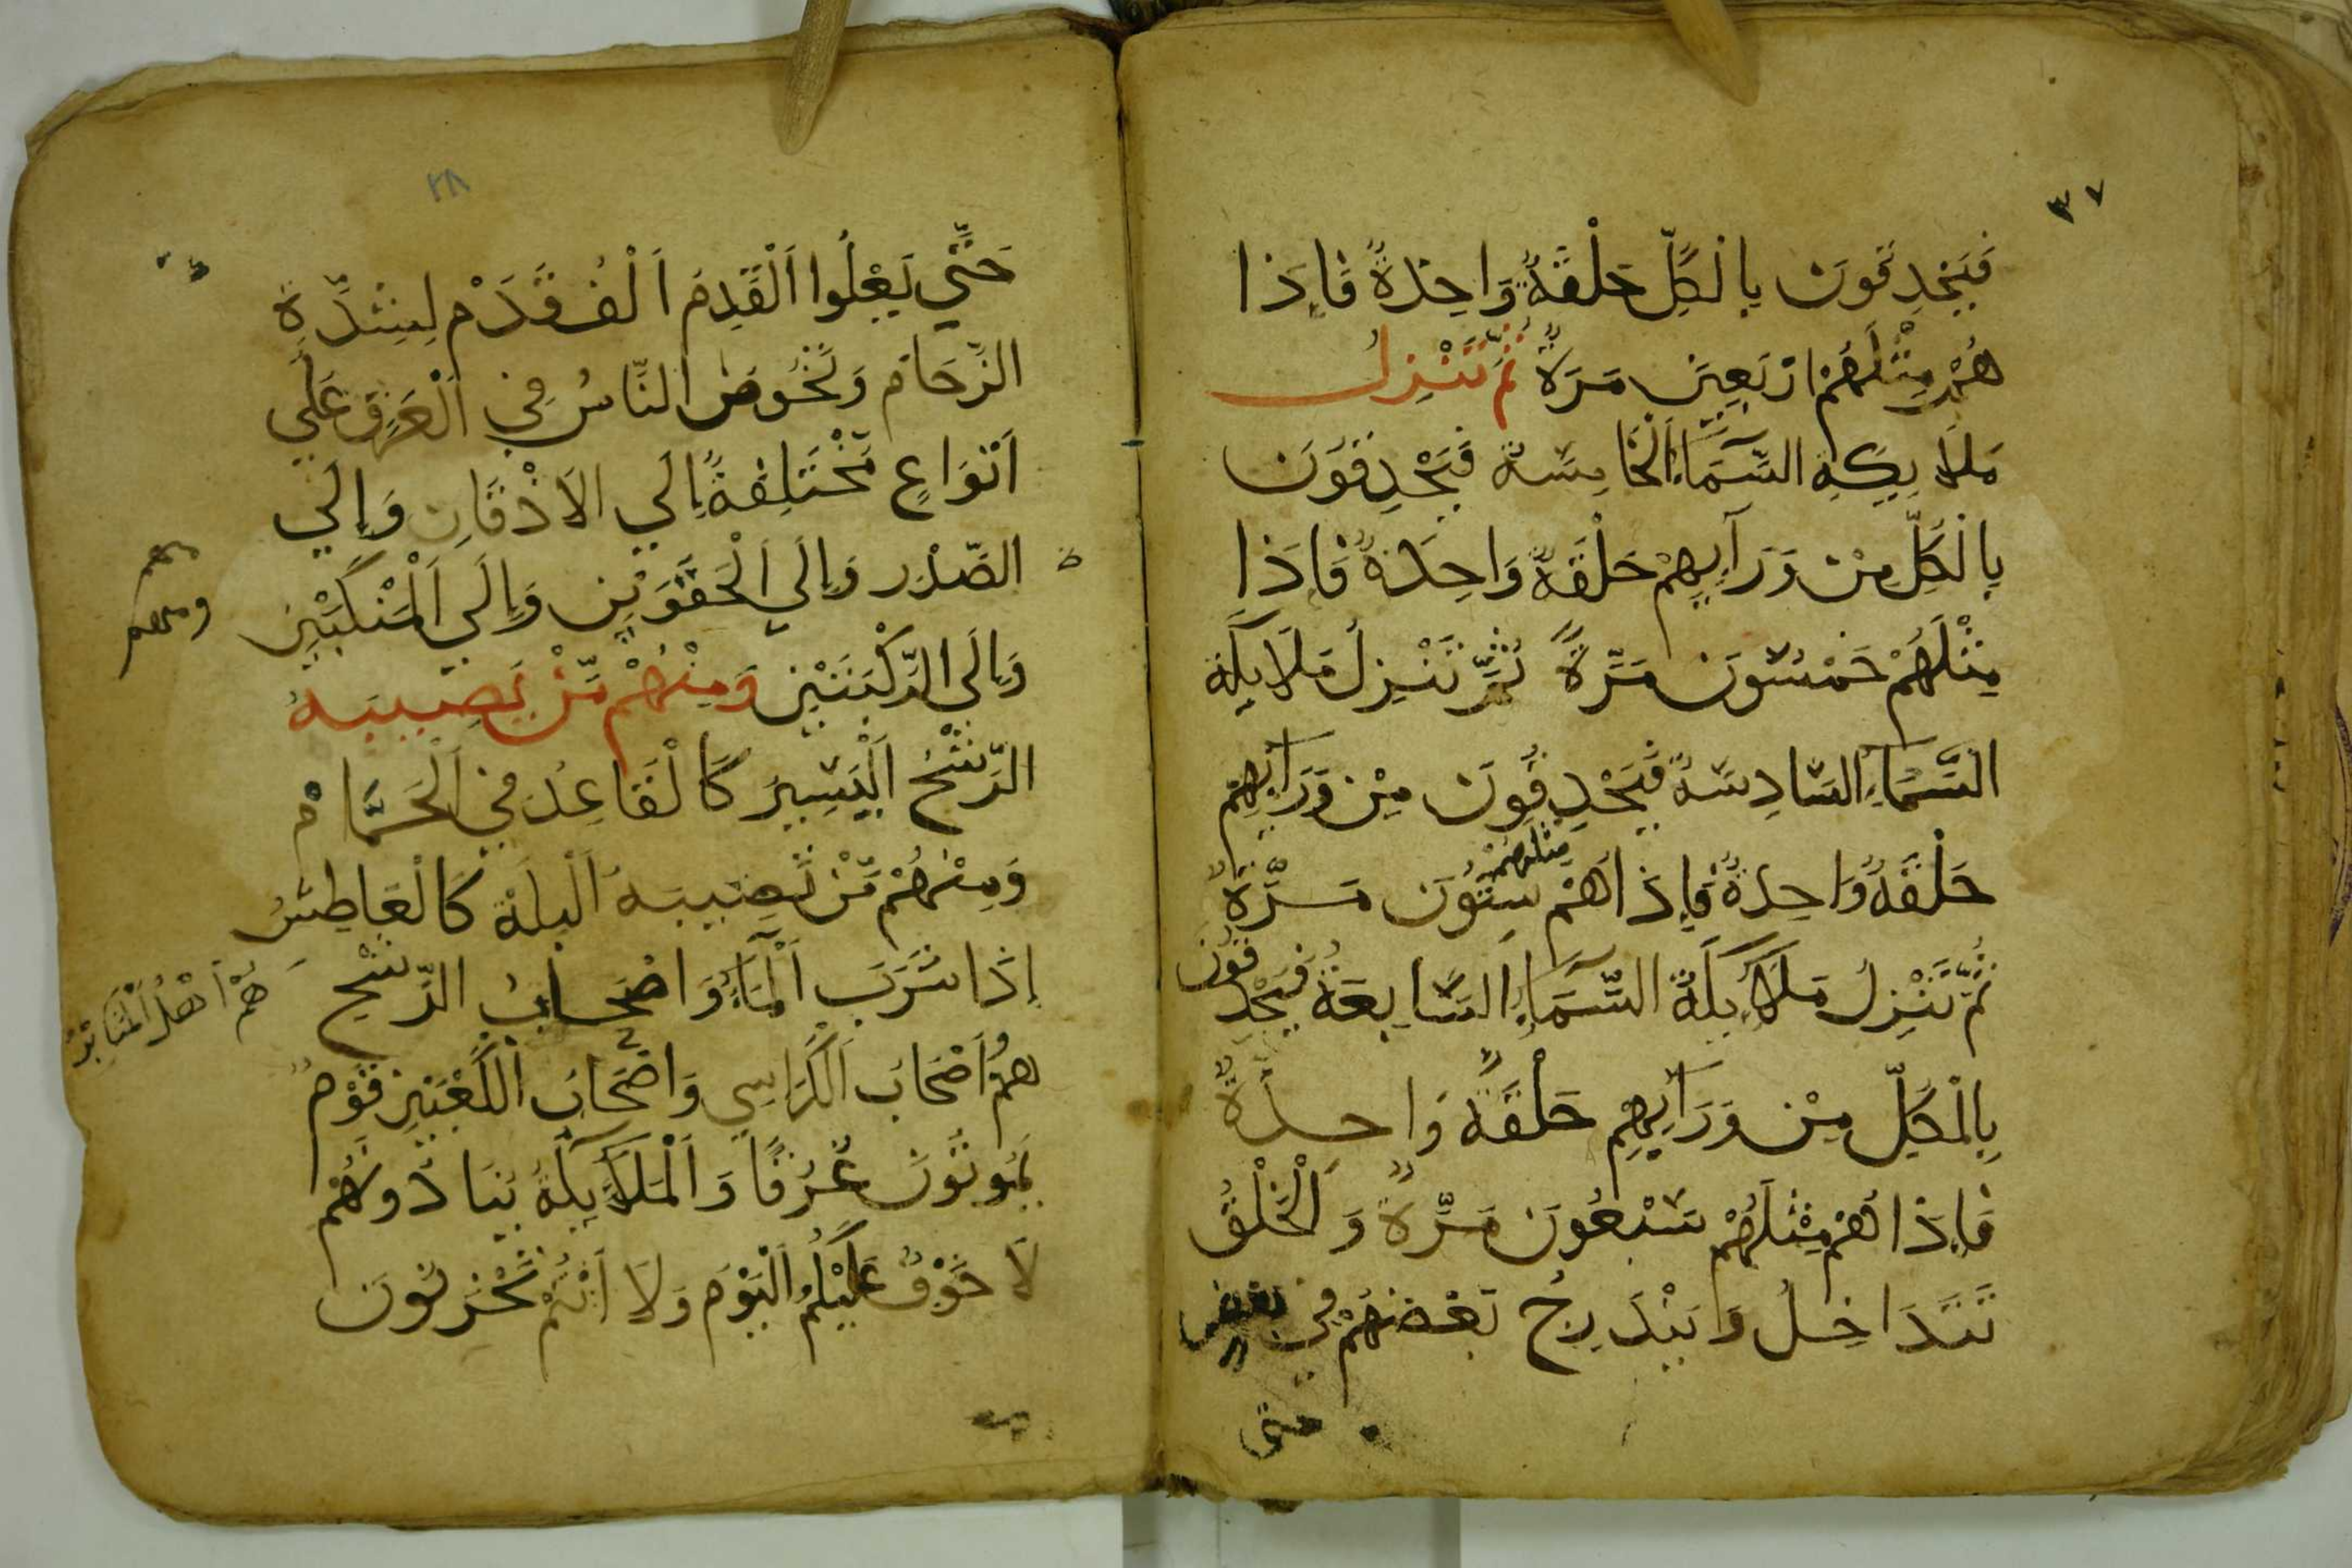 ٣٧
فَيَحْدِقُونَ بِالْكُلِّ حَلْقَةً وَاحِدَةً فَإِذَا
هُمْ مِثْلَهُمْ ارْبَعِيَن مَرَةً ثُمَّ تَنْزِلُ
مَلَايِكِة السَّمَاءِ الْخَامِسَة فَيَحْدِقُونَ
بِالْكُلِّ مِنْ وَرَآيِهِمْ حَلْقَةً وَاحِدَةً فَإِذَا
مِثْلَهُمْ خَمْسُونَ مَرَّةً ثُمَّ تَنْزِلُ مَلَايِكَة
السَّمَاءِ السَّادِسَة فَيَحْدِقُونَ مِنْ وَرَآيِهِمْ
حَلْقَةً وَاحِدَةً فَإِذَا هُمْ مثلهم سِتُّونَ مَرَّةً
ثُمَّ تَنْزِلُ مَلَآيِكَة السَّمَآءِ السَّابِعَة فَيَحْدِقُونَ
بِالْكُلِّ مِنْ وَرَآيِهِمْ حَلْقَةً وَاحِدَةً
فَإِذَا هُمْ مِثْلَهُمْ سَبْعُونَ مَرَّةً وَالْخَلْقُ
تَتَدَاخِلُ وَيَنْدَرِجُ بَعْضُهُمْ فِي بَعْضٍ
حتى
٣٨
حَتَّي يَعْلُوا اَلْقَدِمَ اَلْفُ قَدَمْ لِشِدِّةِ
الزِّحَام وَتَخُوضُ النَّاسُ فِي اَلْعَرَقِ عَلَي
اَنْوَاعٍ مُخْتَلِفَةً اِلَي الاَذْقَانِ وَإِلَي
الصَّدْرِ وَإِلَي اَلْحَقْوَيْنِ وَإِلَي اَلْمَنْكَبَيْنِ
ومنهم
وَإِلَي الرُّكْبَتَيْنِ وَمِنْهُمْ مَّنْ يَصِيبَهُ
الرَّشْحُ اَلْيَسِيرَ كَالْقَاعِدُ فِي اَلْحَمَّامْ
وَمِنْهُمْ مَّنْ تَصِيبَهُ اَلْبلَة كَالْعَاطِشُ
إِذَا شَرَبَ اَلْمَآءَ وَاصْحَابُ الرَّشْحِ
هُمْ اَهْلُ اَلْمَنَابْرُ
هُمْ اَصْحَابَ الْكَرَاسِي وَاصْحَابَ الْكَعْبَيْنِ قَوْمٌ
يَمُوتُونَ غُرُقًا وَاَلْمَلَآيِكَةُ يُنَادُونَهُمْ
لَا خَوْفٌ عَلَيْكُمْ اَلْيَوْمَ وَلَا اَنْتُمْ تَحْزَنُونَ